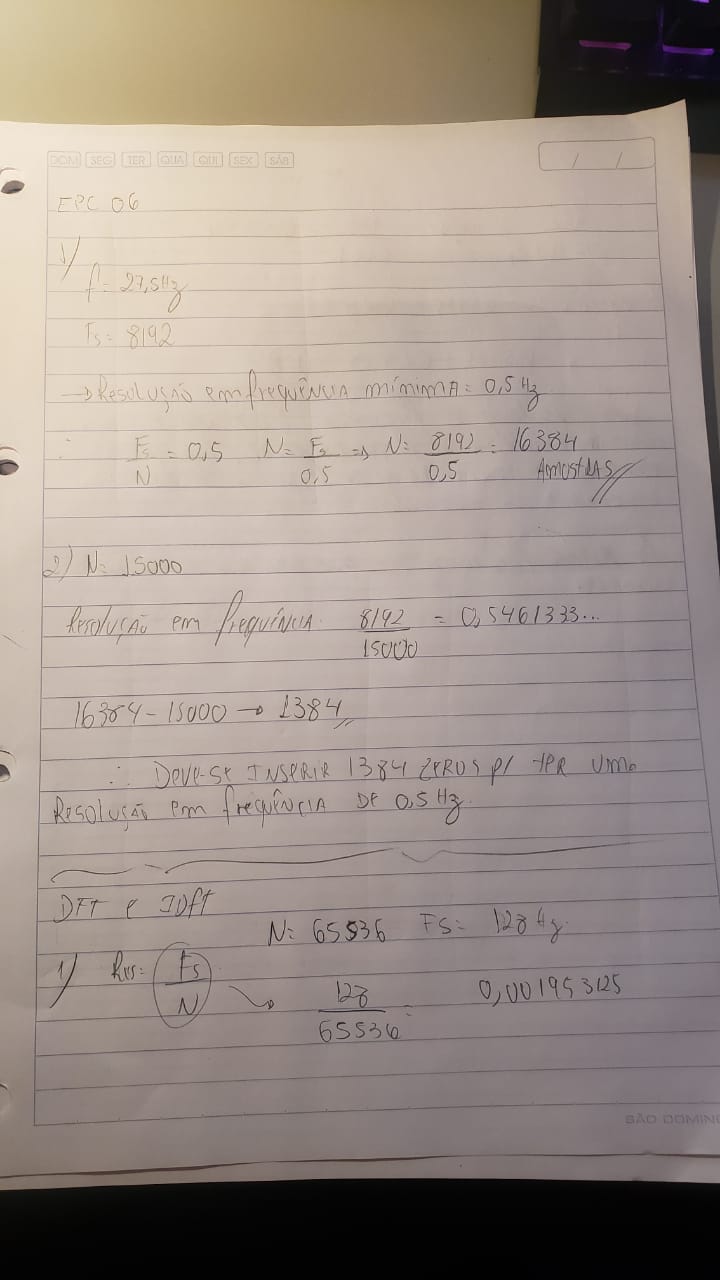 DOM SEG TER QUA QUI SEX SÁB / /
EPC 06
1) f = 27,5Hz
Fs = 8192
→ Resolução em frequência mínima = 0,5 Hz
∴ Fs/N = 0,5 N = Fs/0,5 ⇒ N = 8192/0,5 = 16384 Amostras //
2) N = 15000
Resolução em frequência 8192/15000 = 0,5461333...
16384 - 15000 → 1384 //
∴ Deve-se inserir 1384 zeros p/ ter uma
Resolução em frequência de 0,5 Hz
DFT e IDft
N = 65536 Fs = 128 Hz
1) Res = Fs/N → 128/65536 = 0,001953125
SÃO DOMIN